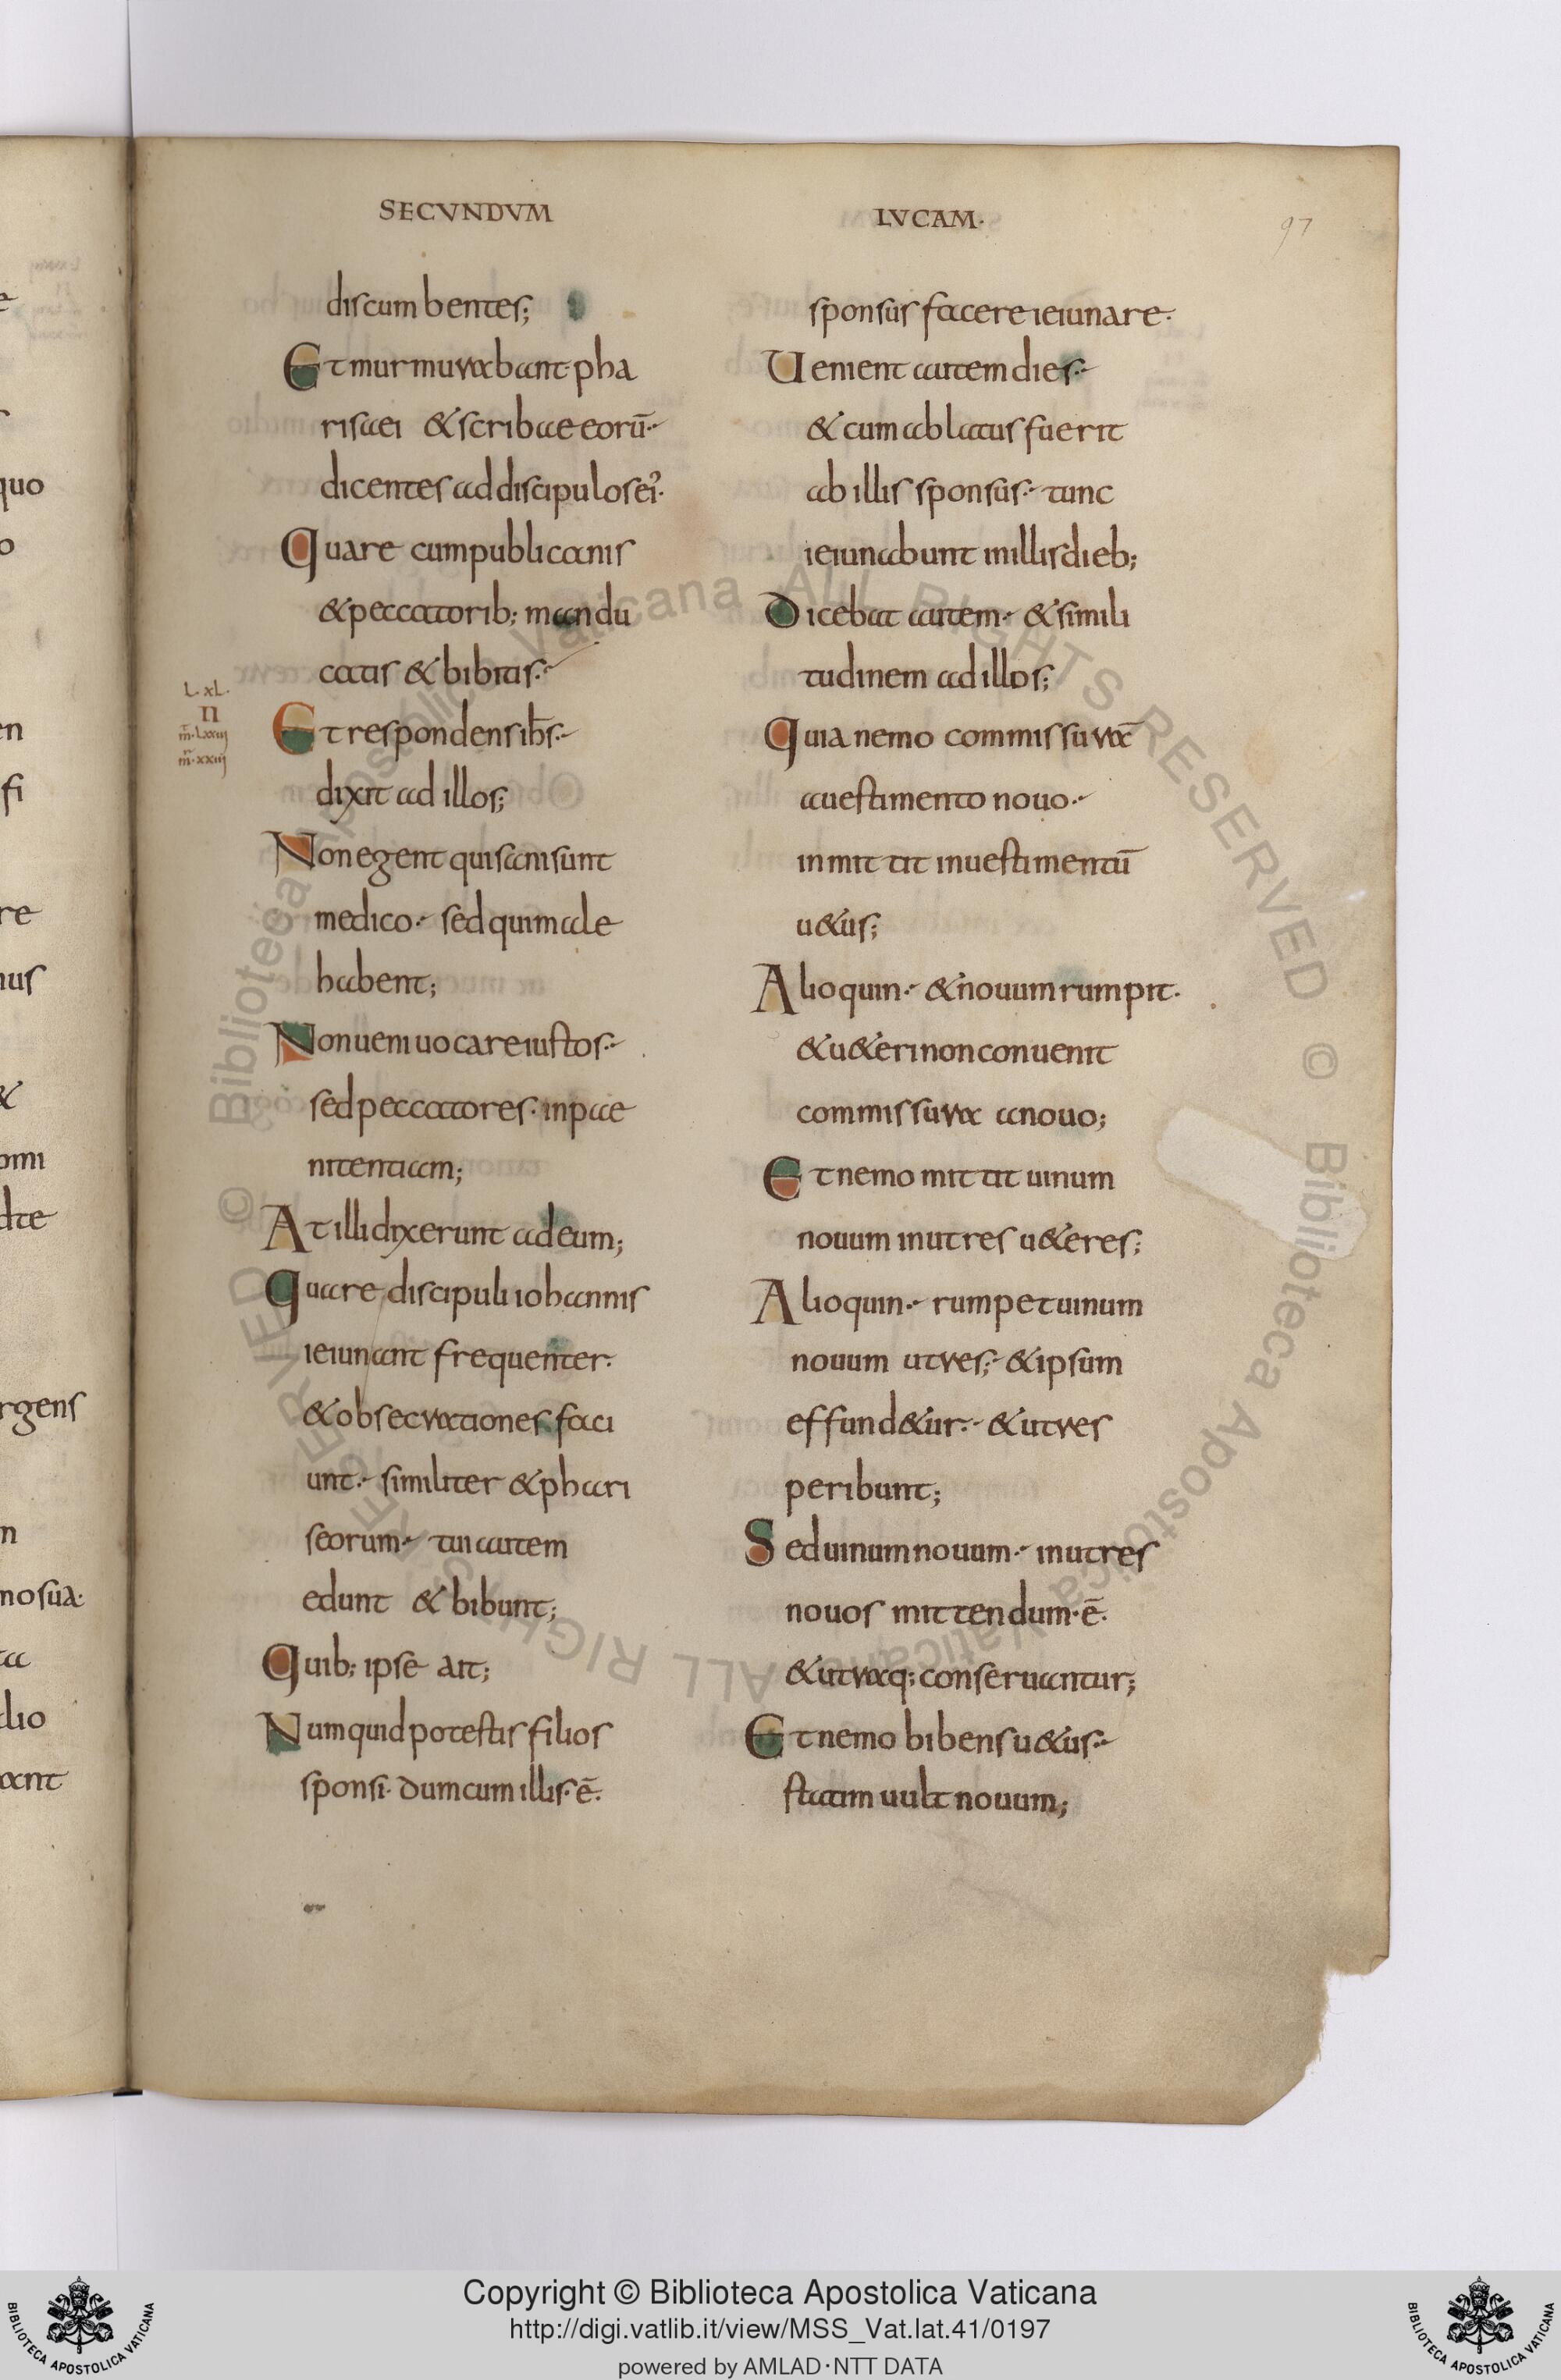 SECVNDVM
discumbentes;
Et murmurabant pha
risaei & scribae eorū.
dicentes ad discipulos ei᾽.
Quare cum publicanis
& peccatorib; mandu
catis & bibitis.
L. xL.
II
m̄. Lxxiij
m̄. xxiij
Et respondens ih̄s.
dixit ad illos;
Non egent qui sani sunt
medico. sed qui male
habent;
Non ueni uocare iustos.
sed peccatores. in pae
nitentiam;
At illi dixerunt ad eum;
Quare discipuli iohannis
ieiunant frequenter.
& obsecrationes faci
unt. similiter & phari
seorum. tui autem
edunt & bibunt;
Quib; ipse ait;
Numquid potestis filios
sponsi. dum cum illis. ē.
LVCAM.
97
sponsus facere ieiunare.
Uenient autem dies.
& cum ablatus fuerit
ab illis sponsus. tunc
ieiunabunt in illis dieb;
Dicebat autem. & simili
tudinem ad illos;
Quia nemo commissurā
a uestimento nouo.
inmittit in uestimentū
u&us;
Alioquin. & nouum rumpit.
& u&eri non conuenit
commissura a nouo;
Et nemo mittit uinum
nouum in utres u&eres;
Alioquin. rumpet uinum
nouum utres; & ipsum
effund&ur. & utres
peribunt;
Sed uinum nouum. in utres
nouos mittendum. ē.
& utraq; conseruantur;
Et nemo bibens u&us.
statim uult nouum;
e
quo
o
en
fi
re
nus
&
omi
dte
rgens
n
no sua.
ta
dio
ant
© Biblioteca Apostolica Vaticana ALL RIGHTS RESERVED © Biblioteca Apostolica Vaticana ALL RIGHTS RESERVED
Copyright © Biblioteca Apostolica Vaticana
http://digi.vatlib.it/view/MSS_Vat.lat.41/0197
powered by AMLAD·NTT DATA
BIBLIOTECA APOSTOLICA VATICANA
BIBLIOTECA APOSTOLICA VATICANA